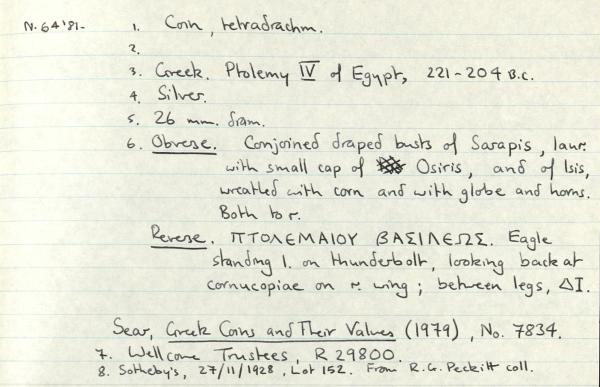 N.64'81- 1. Coin, tetradrachm.
2.
3. Greek. Ptolemy IV of Egypt, 221-204 B.C.
4. Silver.
5. 26 mm. diam.
6. Obverse. Conjoined draped busts of Sarapis, laur.
with small cap of Osiris, and of Isis,
wreathed with corn and with globe and horns.
Both to r.
Reverse. ΠΤΟΛΕΜΑΙΟΥ ΒΑΣΙΛΕΩΣ. Eagle
standing l. on thunderbolt, looking back at
cornucopiae on r. wing; between legs, ΔΙ.
Sear, Greek Coins and Their Values (1979), No. 7834.
7. Wellcome Trustees, R 29800.
8. Sotheby's, 27/11/1928, Lot 152. From R.G. Peckitt coll.